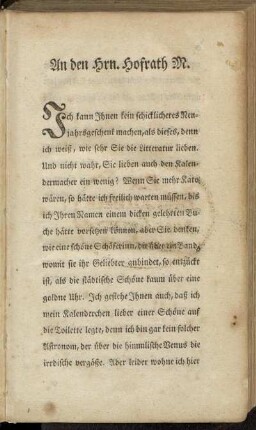 An den Hrn. Hofrath M.
Ich kann Ihnen kein schicklicheres Neu-
jahrsgeschenk machen, als dieses, denn
ich weiß, wie sehr Sie die Litteratur lieben.
Und nicht wahr, Sie lieben auch den Kalen-
dermacher ein wenig? Wenn Sie mehr Kato
wären, so hätte ich freilich warten müssen, bis
ich Ihrem Namen einem dicken gelehrten Bu-
che hätte vorsetzen können, aber Sie denken,
wie eine schöne Schäferinn, die über ein Band,
womit sie ihr Geliebter anbindet, so entzückt
ist, als die städtische Schöne kaum über eine
goldne Uhr. Ich gestehe Ihnen auch, daß ich
mein Kalenderchen lieber einer Schöne auf
die Toilette legte, denn ich bin gar kein solcher
Astronom, der über die himmlische Venus die
irrdische vergäße. Aber leider wohne ich hier